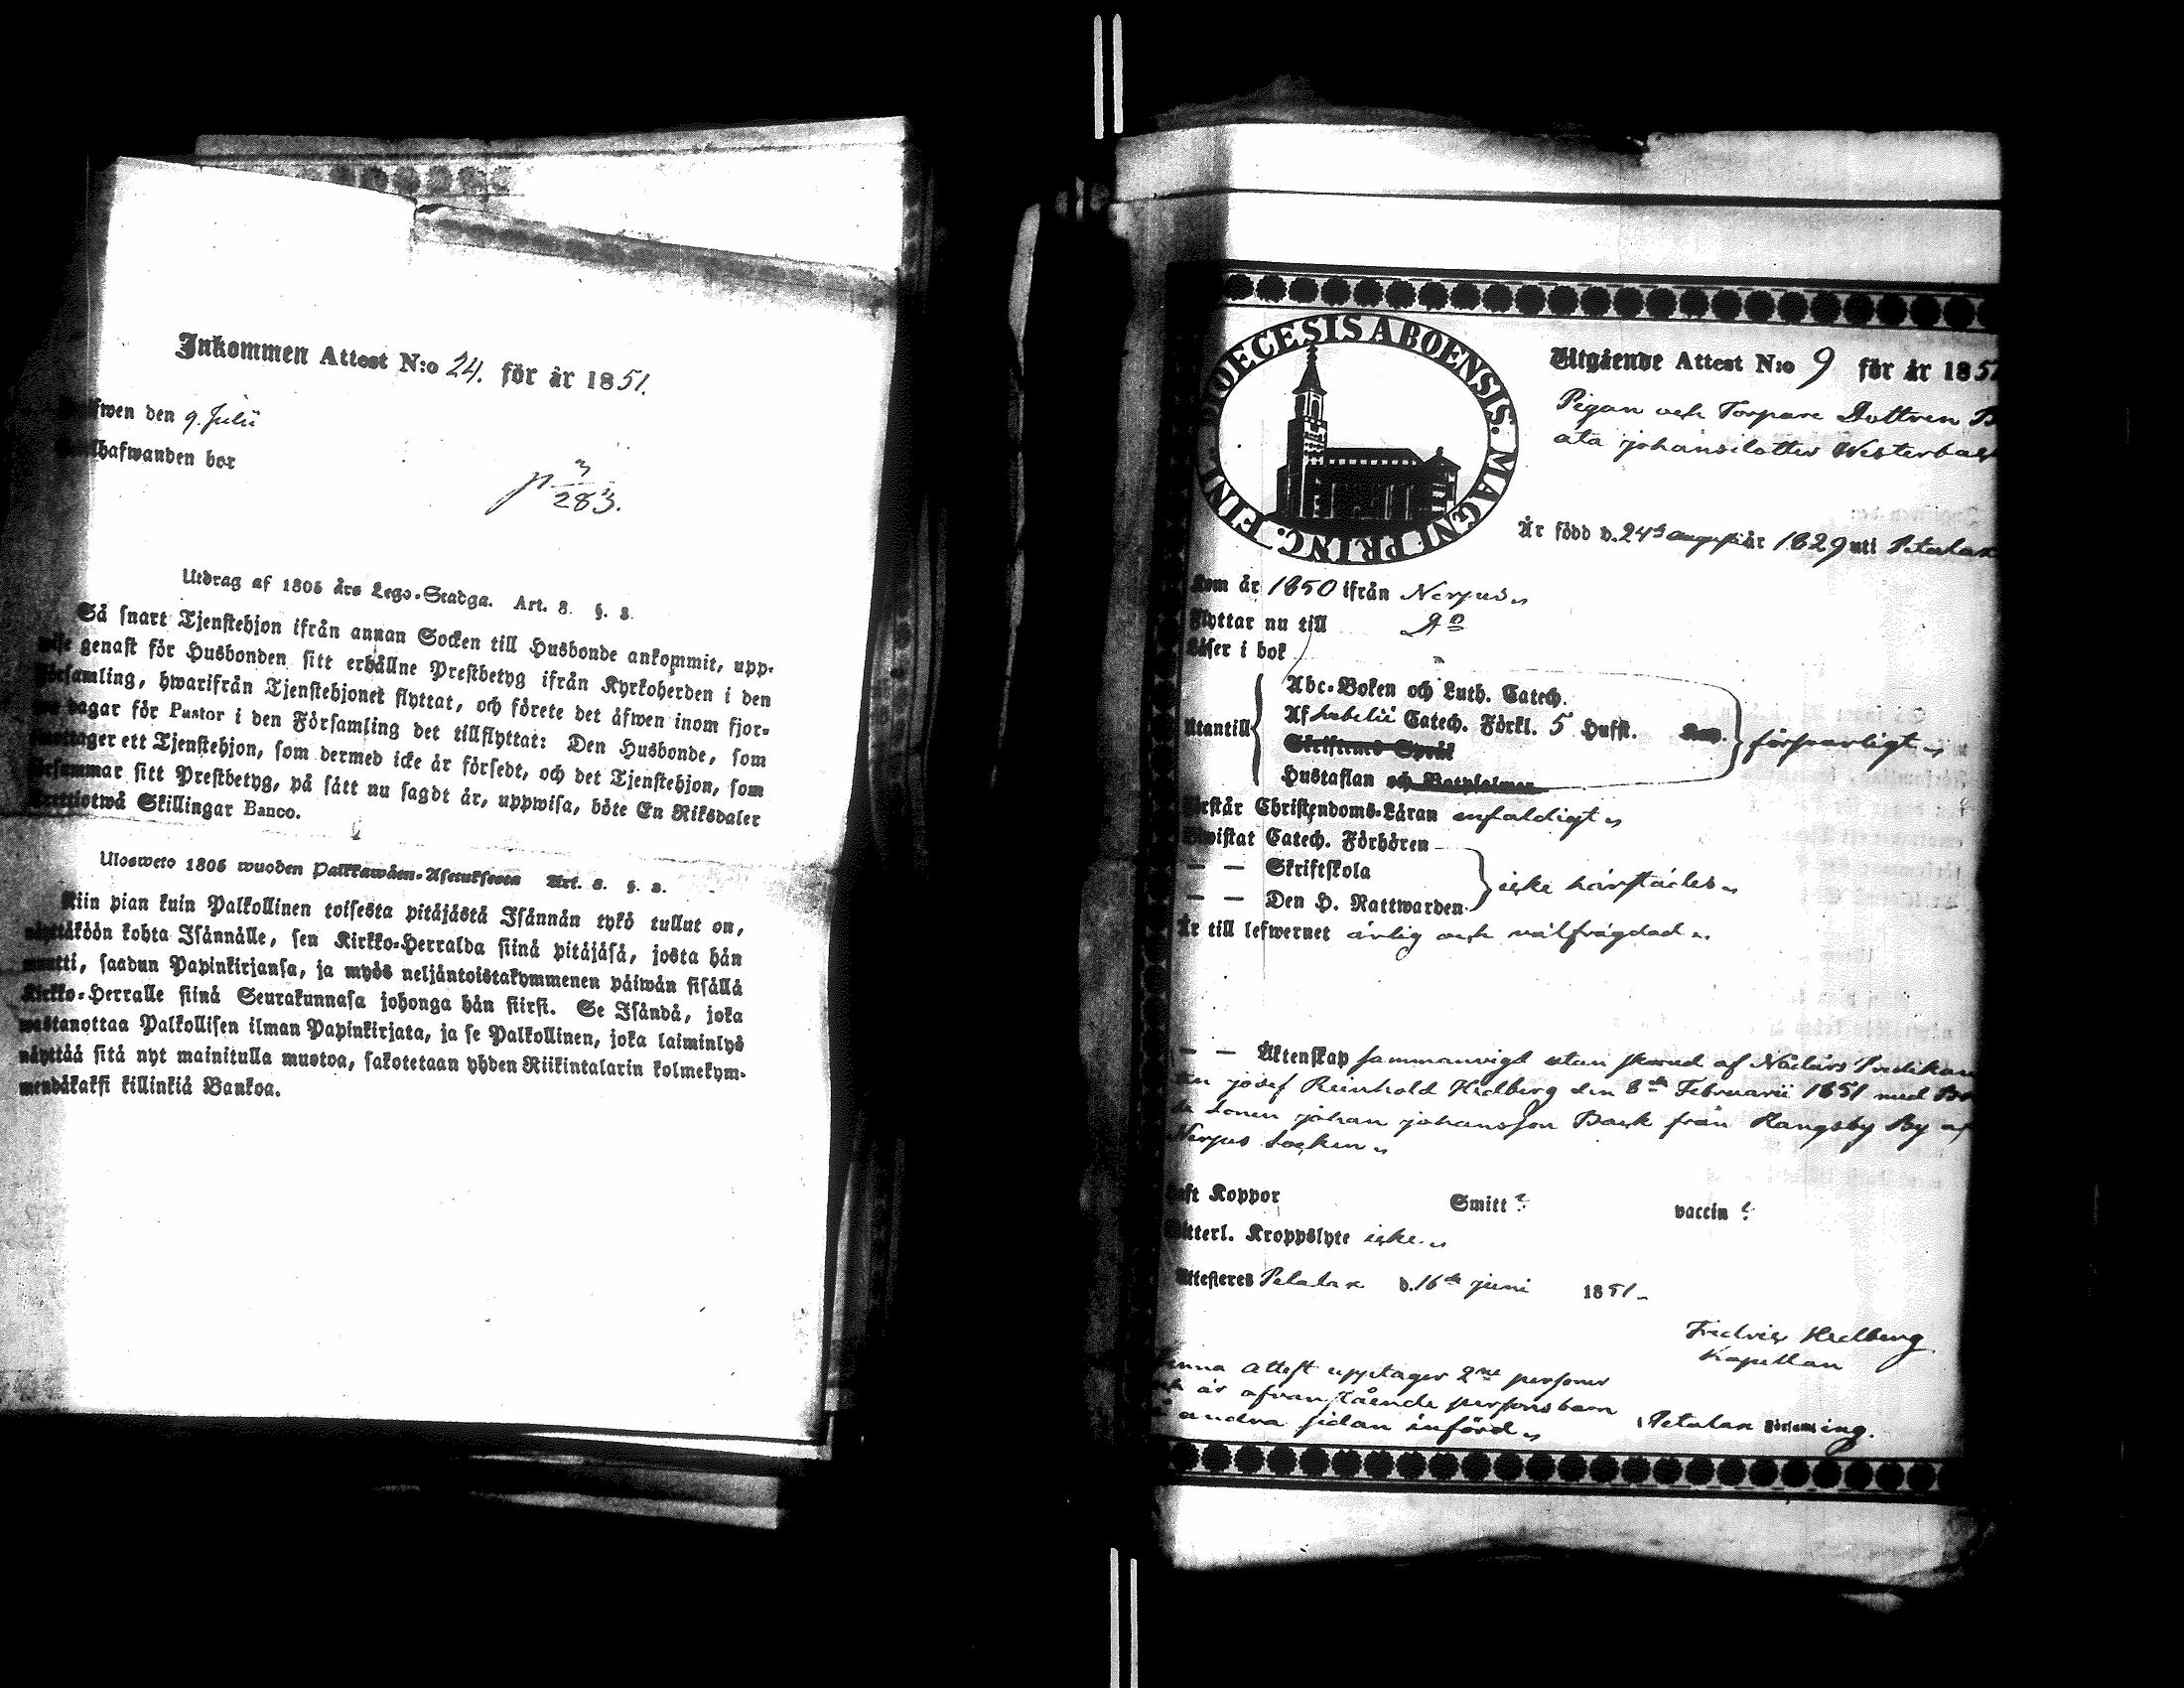 Inkommen Attest N:o 24. för år 1851.
den 9. Julii
bor
p 3/283.
Utdrag af 1805 års Lego-Stadga. Art. 8. §. 2.
Så snart Tjenstehjon ifrån annan Socken till Husbonde ankommit, upp-
wise genast för Husbonden sitt erhållne Prestbetyg ifrån Kyrkoherden i den
Församling, hwarifrån Tjenstehjonet flyttat, och förete det äfwen inom fjor-
dagar för Pastor i den Församling det tillflyttat: Den Husbonde, som
emottager ett Tjenstehjon, som dermed icke är försedt, och det Tjenstehjon, som
försummar sitt Prestbetyg, på sätt nu sagdt är, uppwisa, böte En Riksdaler
Trettiotwå Skillingar Banco.
Ulosweto 1805 wuoden Palkkawäen-Asetuksesta Art. 8. §. 2.
Niin pian kuin Palkollinen toisesta pitäjästä Isännän tykö tullut on,
näyttäköön kohta Isännälle, sen Kirkko-Herralda siinä pitäjäsä, josta hän
muutti, saadun Papinkirjansa, ja myös neljäntoistakymmenen päiwän sisällä
Kirkko-Herralle siinä Seurakunnasa johonga hän siirsi. Se Isändä, joka
wastanottaa Palkollisen ilman Papinkirjata, ja se Palkollinen, joka laiminlyö
näyttää sitä nyt mainitulla muotoa, sakotetaan yhden Riikintalarin kolmekym-
mendäkaksi killinkiä Bankoa.
DIOECESIS ABOENSIS. MAGNI PRINC. FINL.
Utgående Attest N:o 9 för år 185
Pigan och Torpare Dottren B
ata johansdotter Westerback
År född d. 24de augusti år 1829 uti Petalax
Kom år 1850 ifrån Nerpes
Flyttar nu till Do
Läser i bok
Utantill
Abc-Boken och Luth. Catech.
Af Svebelii Catech. Förkl. 5 Hufst. försvarligt
Skriftenes Språk
Hustaflan och Botpsalmer
Förstår Christendoms-Läran enfaldigt
Bewistat Catech. Förhören
— — Skriftskola icke härstädes
— — Den H. Nattwarden
Är till lefwernet ärlig och välfrägdad
— — Äktenskap sammanvigd utan skrud af Nådårs Predikan
en josef Reinhold Hedberg den 8de Februarii 1851 med Bo
de Sonen johan johansson Back från Rangsby By af
Nerpes Socken
Haft Koppor Smitt ? vaccin ?
Wetterl. Kroppslyte icke
Attesteres Petalax d. 16de juni 1851
Fredric Hedberg
Kapellan
Denna attest upptager 2ne personer
är ofvanstående persons barn
andra sidan införd
Petalax Församling.